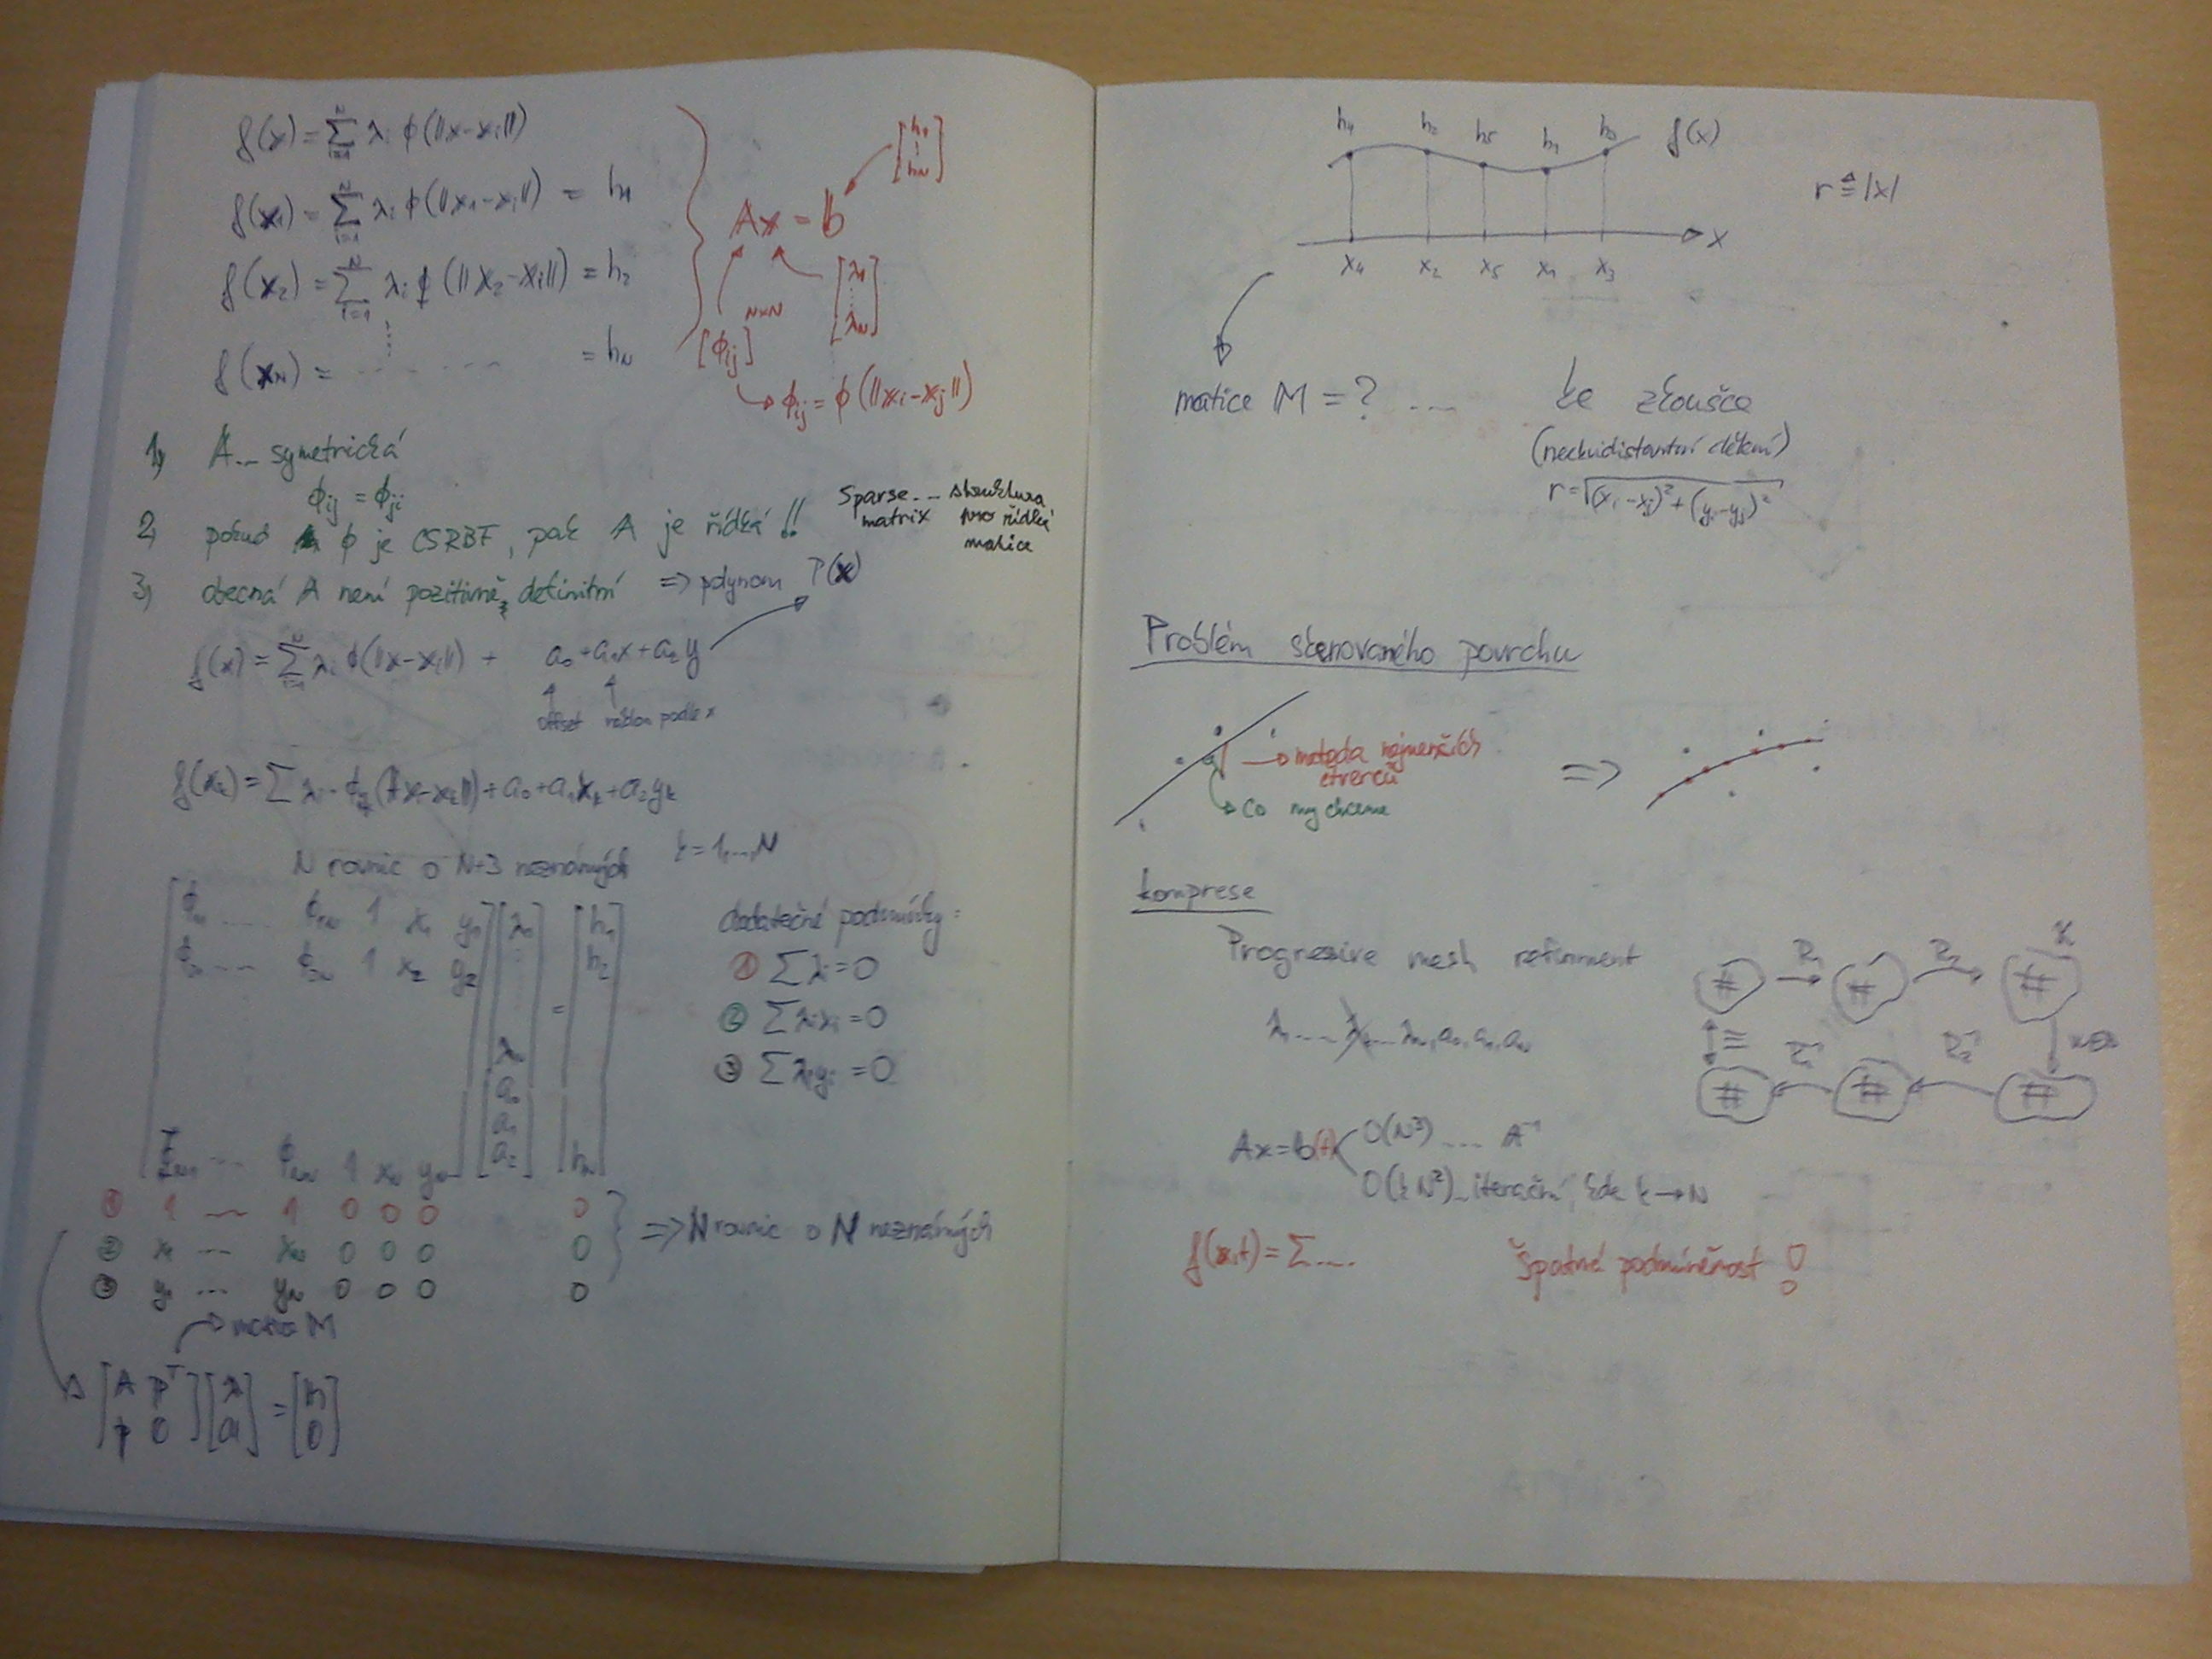 f(x) = Σ λi ϕ(||x-xi||)
f(x1) = Σ λi ϕ(||x1-xi||) = h1
f(x2) = Σ λi ϕ(||x2-xi||) = h2
f(xN) = ... = hN
[h1 ⋮ hN]
Ax = b
[λ1 ⋮ λN]
N×N
[ϕij]
ϕij = ϕ(||xi-xj||)
1) A... symetrická
ϕij = ϕji
2) pokud ϕ je CSRBF, pak A je řídká!!
Sparse... struktura
matrix pro řídké
matice
3) obecná A není pozitivně definitní => polynom P(x)
f(x) = Σ λi ϕ(||x-xi||) + a0+a1x+a2y
offset náklon podle x
f(xk) = Σ λi ϕ(||xi-xk||)+a0+a1xk+a2yk
N rovnic o N+3 neznámých k=1,...,N
ϕ11 .... ϕ1N 1 x1 y1 λ1 h1
ϕ21 .... ϕ2N 1 x2 y2 = h2
λN
a0
a1
ϕN1 ... ϕNN 1 xN yN a2 hN
dodatečné podmínky:
① Σλi=0
② Σλixi=0
③ Σλiyi=0
① 1 ... 1 0 0 0 0
② x1 ... xN 0 0 0 0
③ y1 ... yN 0 0 0 0
=> N rovnic o N neznámých
matice M
[A P^T; P 0][λ; a] = [h; 0]
h4 h2 h5 h1 h3 f(x)
x
x4 x2 x5 x1 x3
r ≙ |x|
matice M = ? ... ke zkoušce
(neekvidistantní dělení)
r=√(xi-xj)²+(yi-yj)²
Problém skenovaného povrchu
metoda nejmenších
čtverců
co my chceme
=>
komprese
Progresive mesh refinment
λ1.... ... λN, a0, a1, a2
# R1 # R2 #
≡
# # #
Ax=b(t) O(N³) .... A⁻¹
O(kN²)...iterační, kde k→N
f(x,t)=Σ....
Špatná podmíněnost !